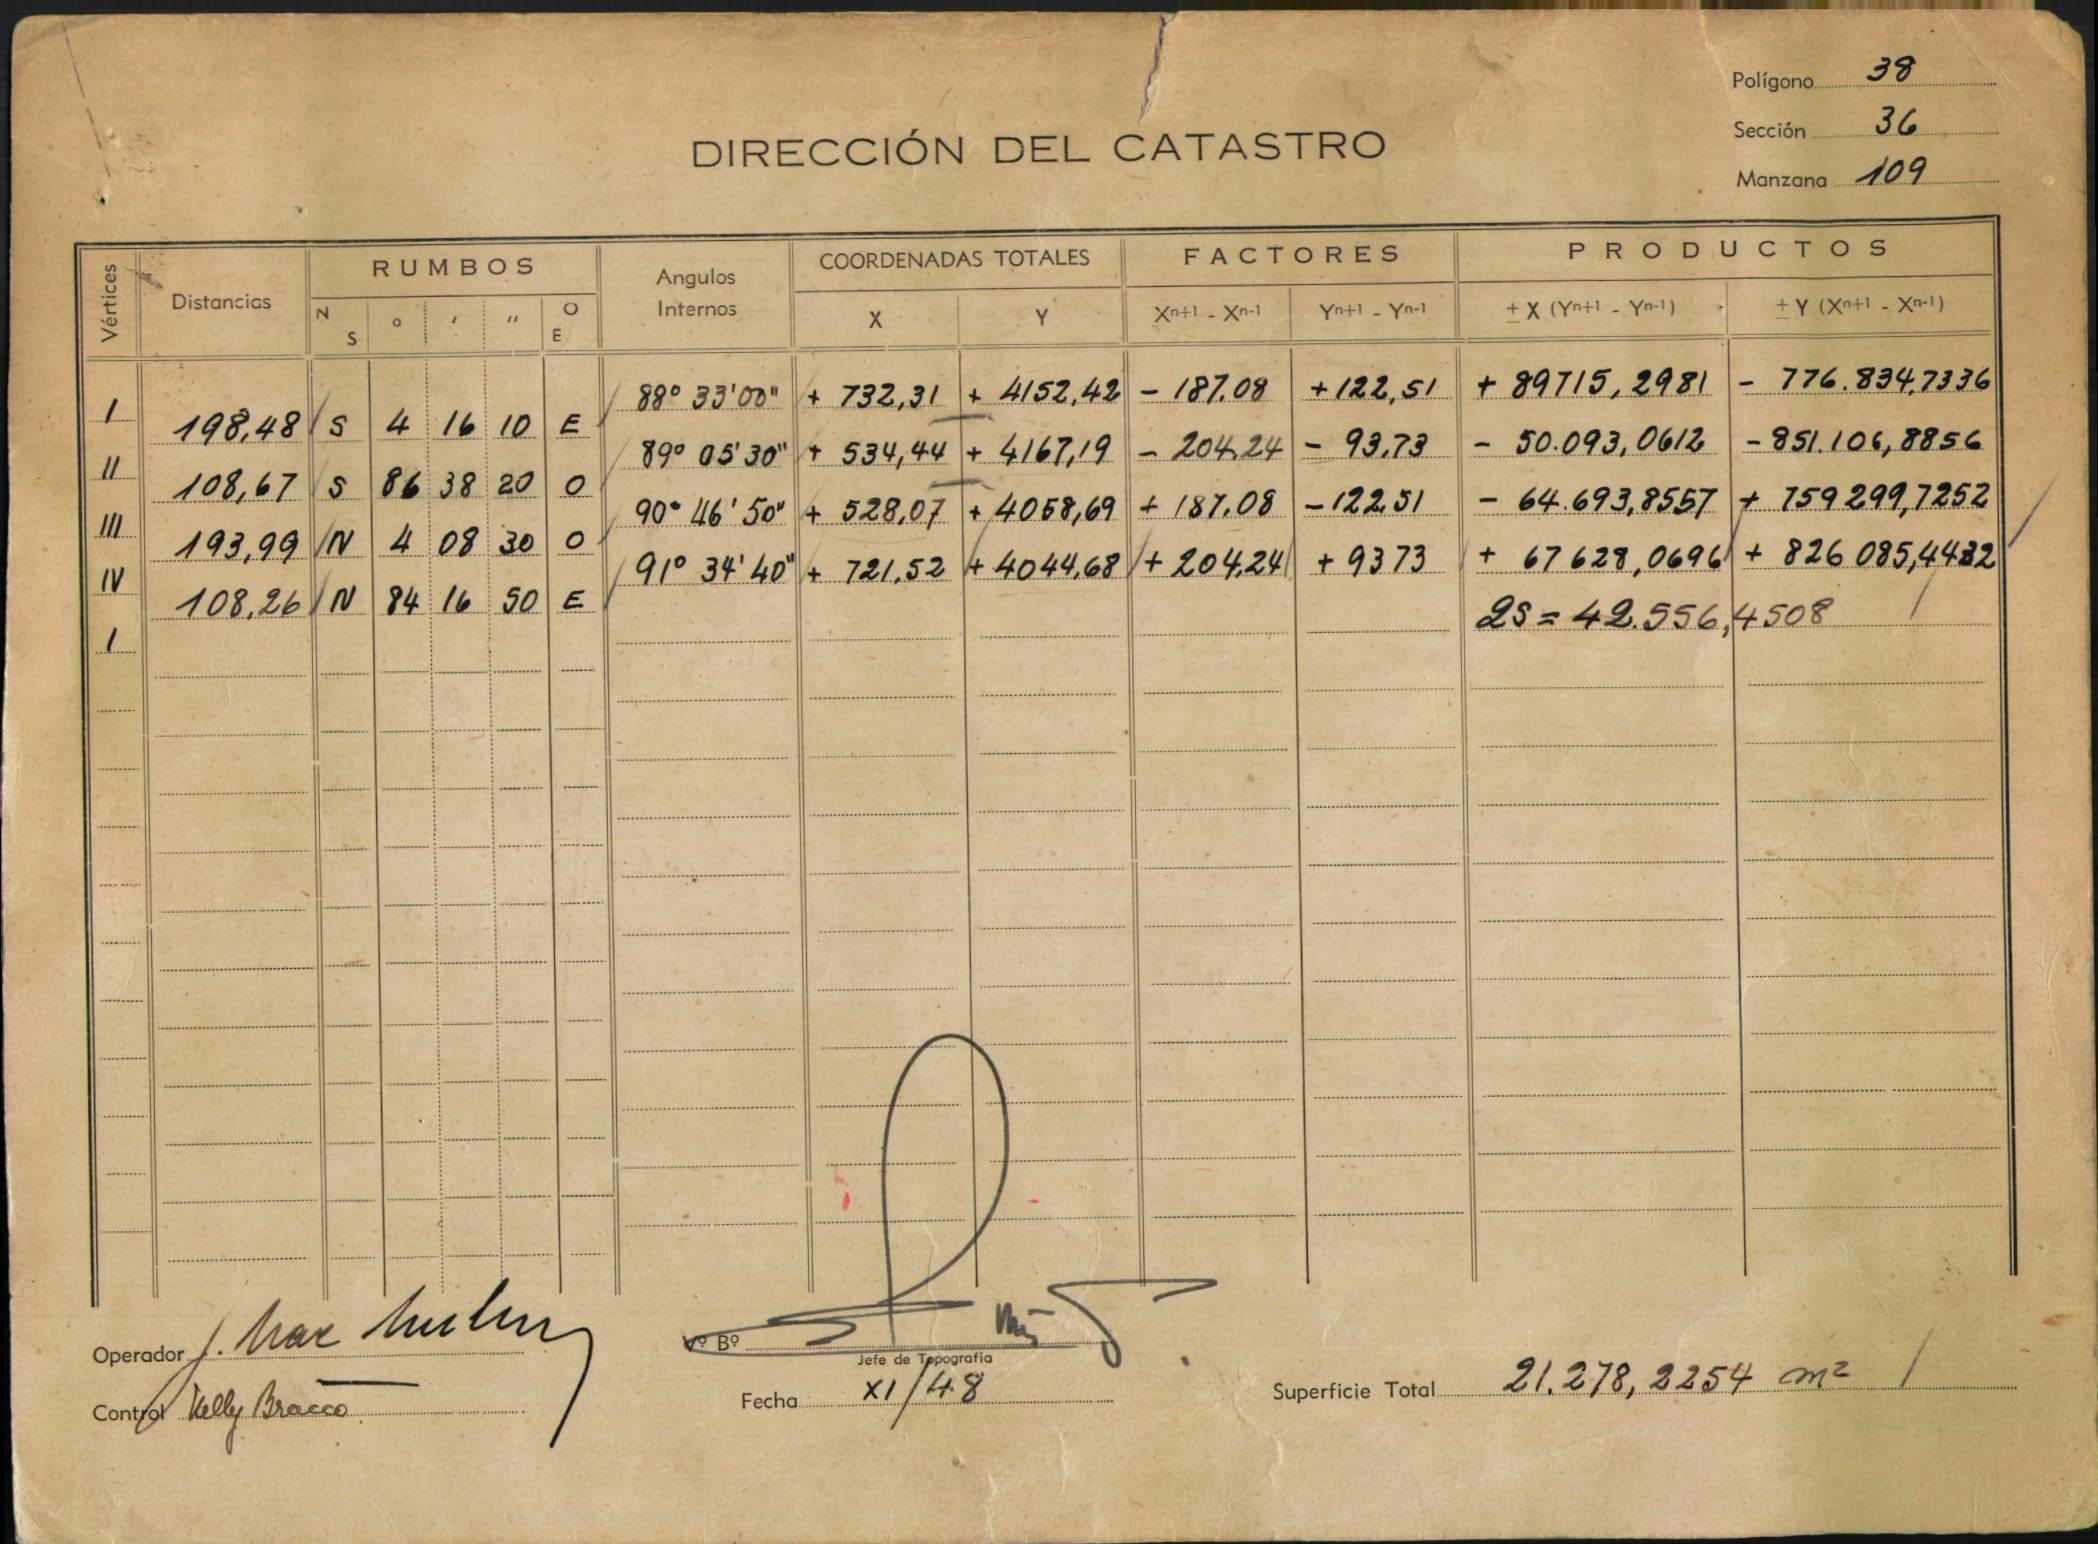 Polígono 38
Sección 36
Manzana 109
DIRECCIÓN DEL CATASTRO
Vértices Distancias RUMBOS Angulos Internos COORDENADAS TOTALES FACTORES PRODUCTOS
N S ° ′ ″ O E X Y Xn+1 - Xn-1 Yn+1 - Yn-1 ± X (Yn+1 - Yn-1) ± Y (Xn+1 - Xn-1)
I 88° 33' 00" + 732,31 + 4152,42 - 187.08 + 122,51 + 89715,2981 - 776.834,7336
198,48 S 4 16 10 E
II 89° 05' 30" + 534,44 + 4167,19 - 204,24 - 93,73 - 50.093,0612 - 851.106,8856
108,67 S 86 38 20 O
III 90° 46' 50" + 528,07 + 4058,69 + 187,08 - 122,51 - 64.693,8557 + 759 299,7252
193,99 N 4 08 30 O
IV 91° 34' 40" + 721,52 + 4044,68 + 204,24 + 93 73 + 67 628,0696 + 826 085,4432
108,26 N 84 16 50 E
I 2S = 42.556,4508
Operador J.
Control Kelly Bracco
Vº Bº
Jefe de Topografía
Fecha XI/48
Superficie Total 21.278,2254 m²